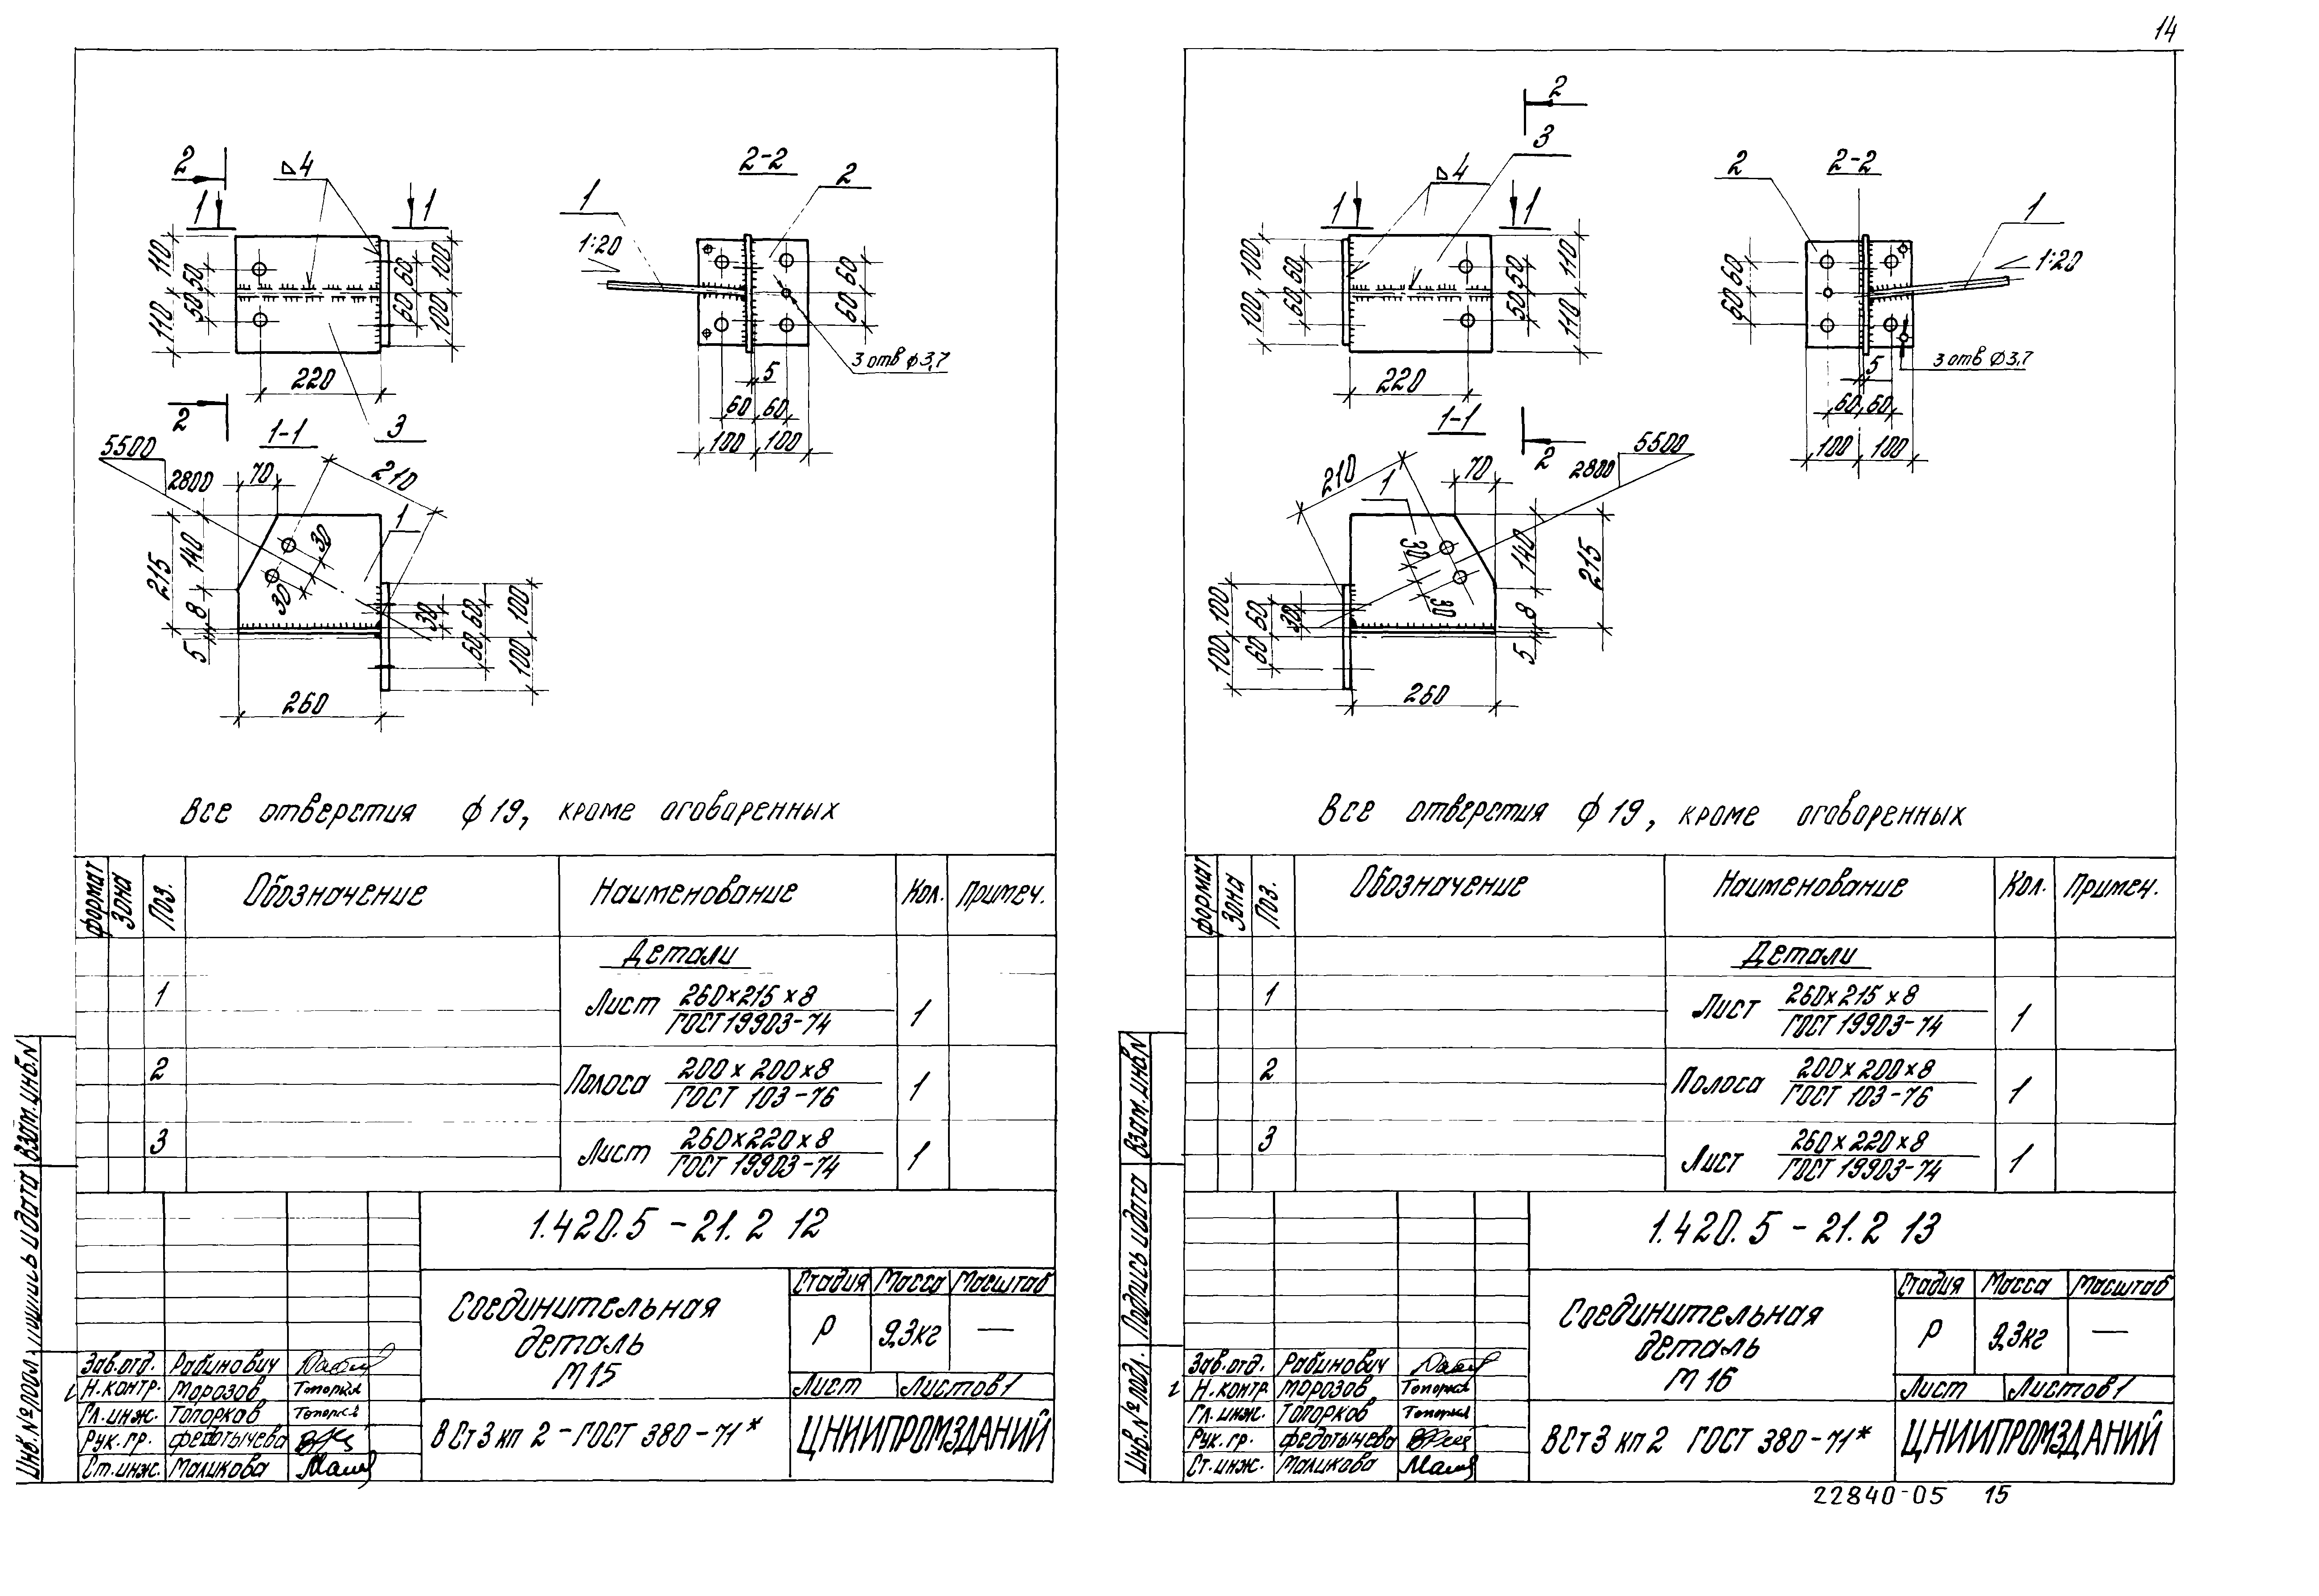 14
2
△4
1
1
110
110
50
50
60
60
100
100
220
2
3
2-2
1
2
1:20
60
60
3 отв ф3,7
5
60
60
100
100
1-1
5500
2800
70
210
1
30
30
215
140
8
5
30
60
60
100
100
260
Все отверстия ф19, кроме оговоренных
Формат
Зона
Поз.
Обозначение
Наименование
Кол.
Примеч.
Детали
1
Лист 260×215×8
ГОСТ 19903-74
1
2
Полоса 200×200×8
ГОСТ 103-76
1
3
Лист 260×220×8
ГОСТ 19903-74
1
1.420.5-21.2 12
Соединительная
деталь
М15
Стадия Масса Масштаб
Р 9,3кг —
Лист Листов 1
Зав.отд. Рабинович
Н.контр. Морозов
Гл.инж. Топорков
Рук.гр. Федотычева
Ст.инж. Маликова
ВСт3 кп 2-ГОСТ 380-71*
ЦНИИПРОМЗДАНИЙ
Инв.№ подл.
Подпись и дата
Взам.инв.N
2
3
△4
1
1
100
100
60
60
50
50
110
110
220
2
2-2
2
1
1:20
60
60
3 отв ф3,7
5
60
60
100
100
1-1
5500
2800
210
1
70
30
30
140
215
8
5
100
100
60
60
30
260
Все отверстия ф19, кроме оговоренных
Формат
Зона
Поз.
Обозначение
Наименование
Кол.
Примеч.
Детали
1
Лист 260×215×8
ГОСТ 19903-74
1
2
Полоса 200×200×8
ГОСТ 103-76
1
3
Лист 260×220×8
ГОСТ 19903-74
1
1.420.5-21.2 13
Соединительная
деталь
М16
Стадия Масса Масштаб
Р 9,3кг —
Лист Листов 1
Зав.отд. Рабинович
Н.контр. Морозов
Гл.инж. Топорков
Рук.гр. Федотычева
Ст.инж. Маликова
ВСт3 кп2 ГОСТ 380-71*
ЦНИИПРОМЗДАНИЙ
Инв.№ подл.
Подпись и дата
Взам.инв.N
22840-05 15